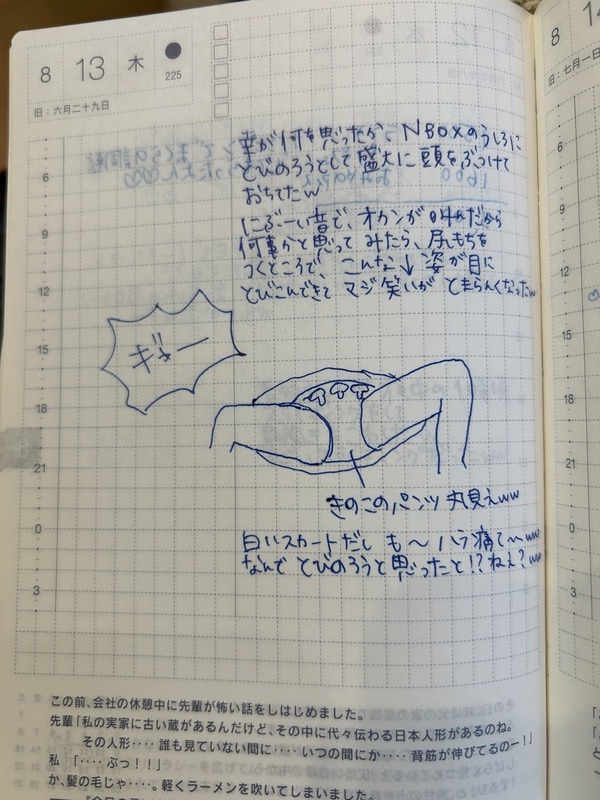 8 13 木 225
旧：六月二十九日
が何を思ったか NBOXのうしろに
とびのろうとして盛大に頭をぶつけて
おちてたw
にぶーい音で、オカンが叫んだから
何事かと思って みたら、尻もちを
つくところで、こんな↓姿が目に
とびこんできて マジ笑いが とまらんくなったw
ギャー
きのこのパンツ 丸見えww
白いスカートだし も〜ハラ痛て〜ww
なんで とびのろうと思ったと!?ねぇ?ww
6
9
12
15
18
21
0
3
この前、会社の休憩中に先輩が怖い話をしはじめました。
先輩「私の実家に古い蔵があるんだけど、その中に代々伝わる日本人形があるのね。
その人形‥‥誰も見ていない間に‥‥いつの間にか‥‥背筋が伸びてるのー！」
私 「‥‥ぶっ！！」
か、髪の毛じゃ‥‥。軽くラーメンを吹いてしまいました。
8
旧：七月一日
6
9
12
15
18
21
0
3